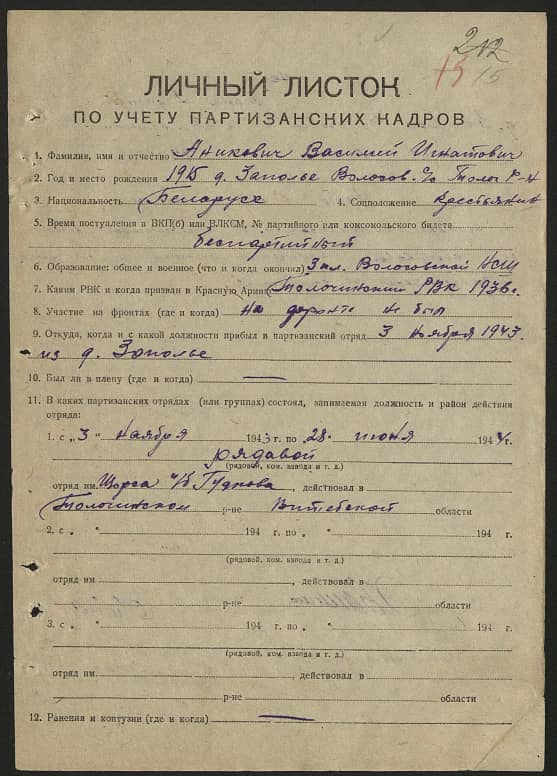 212
15 15
ЛИЧНЫЙ ЛИСТОК
ПО УЧЕТУ ПАРТИЗАНСКИХ КАДРОВ
1. Фамилия, имя и отчество Аникович Василий Игнатович
2. Год и место рождения 1915 д. Заполье Волосов. с/с Толоч р-н
3. Национальность Беларусс 4. Соцположение Крестьянин
5. Время поступления в ВКП(б) или ВЛКСМ, № партийного или комсомольского билета
беспартийный
6. Образование: общее и военное (что и когда окончил) 3 кл. Волосовской НСШ
7. Каким РВК и когда призван в Красную Армию Толочинский РВК 1936 г.
8. Участие на фронтах (где и когда) на фронте не был
9. Откуда, когда и с какой должности прибыл в партизанский отряд 3 ноября 1943.
из д. Заполье
10. Был ли в плену (где и когда) —
11. В каких партизанских отрядах (или группах) состоял, занимаемая должность и район действия
отряда:
1. с „3“ ноября 1943 г. по „28“ июня 1944 г.
рядавой
(рядовой, ком. взвода и т. д.)
отряд им. Щорса п/б Гудкова, действовал в
Толочинском р-не Витебской области
2. с „ “ 194 г. по „ “ 194 г.
(рядовой, ком. взвода и т. д.)
отряд им , действовал в
р-не области
3. с „ “ 194 г. по „ “ 194 г.
(рядовой, ком. взвода и т. д.)
отряд им. , действовал в
р-не области
12. Ранения и контузии (где и когда) —